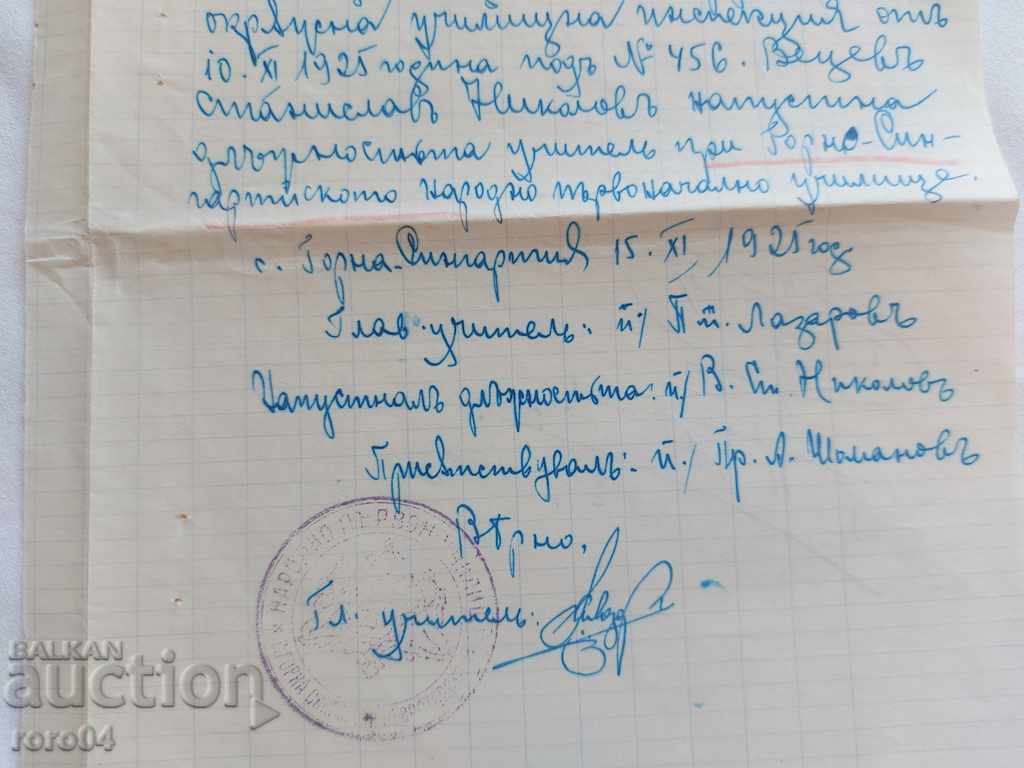 окръжна училищна инспекция отъ
10. XI 1925 година подъ № 456. Вецевъ
Станиславъ Николовъ напустна
длъжностьта учитель при Горно-Син-
гартийското народно първоначално училище.
с. Горна-Сингартия 15. XI 1925 год
Глав. учитель: п./ П. Лазаровъ
Напустналъ длъжностьта: п/ В. Ст. Николовъ
Присѫтствувалъ: п./ Пр. А. Шомановъ
Вѣрно,
Гл. учитель:
НАРОДНО ПЪРВОН
BALKAN
auction
roro04